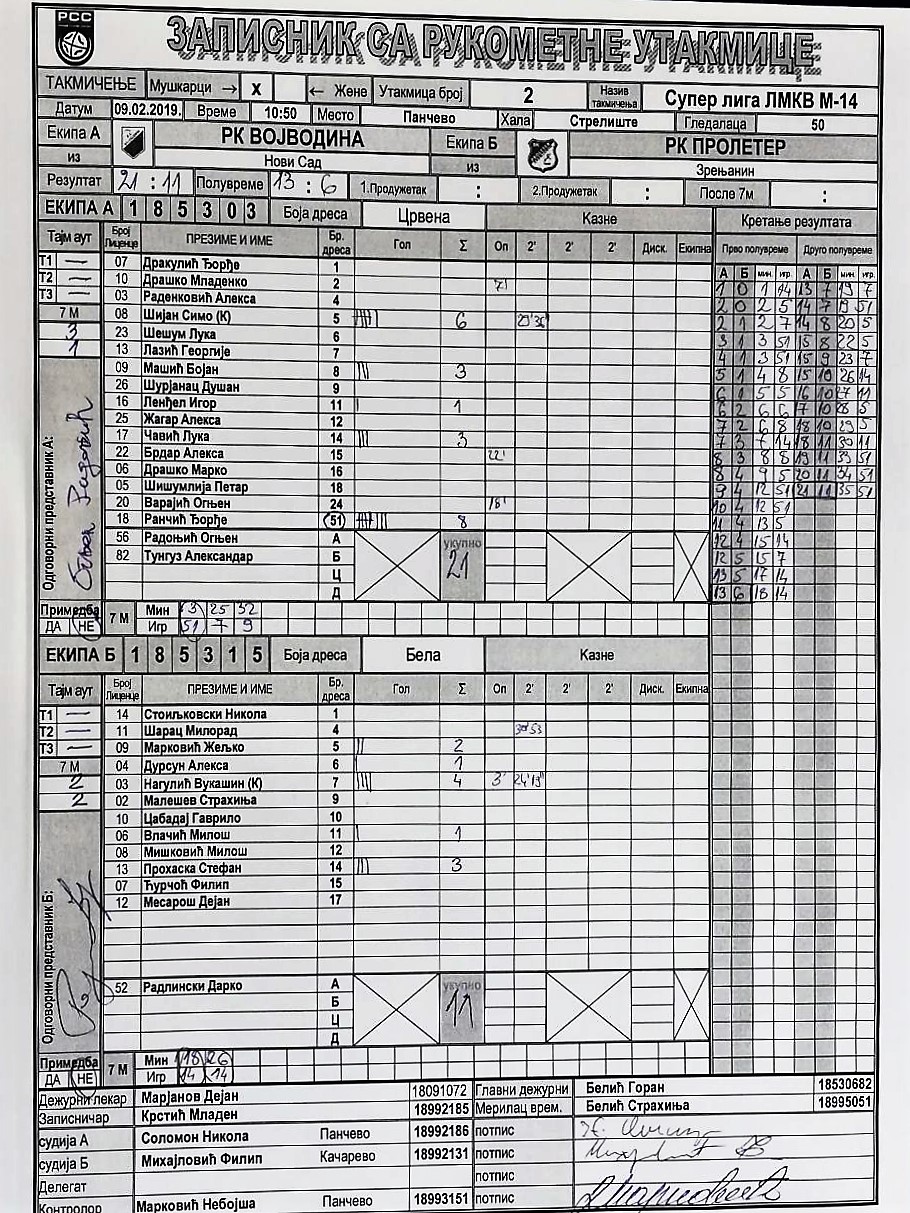 РСС
ЗАПИСНИК СА РУКОМЕТНЕ УТАКМИЦЕ
ТАКМИЧЕЊЕ Мушкарци → X ← Жене Утакмица број 2 Назив такмичења Супер лига ЛМКВ М-14
Датум 09.02.2019. Време 10:50 Место Панчево Хала Стрелиште Гледалаца 50
Екипа А РК ВОЈВОДИНА Екипа Б РК ПРОЛЕТЕР
из Нови Сад из Зрењанин
Резултат 21 : 11 Полувреме 13 : 6 1.Продужетак : 2.Продужетак : После 7м :
ЕКИПА А 1 8 5 3 0 3 Боја дреса Црвена Казне Кретање резултата
Тајм аут Број Лиценце ПРЕЗИМЕ И ИМЕ Бр. дреса Гол Σ Оп 2' 2' 2' Диск. Екипна Прво полувреме Друго полувреме
А Б мин. игр. А Б мин. игр.
Т1 — 07 Дракулић Ђорђе 1
Т2 — 10 Драшко Младенко 2
Т3 — 03 Раденковић Алекса 4
7 М 08 Шијан Симо (К) 5 6
3 23 Шешум Лука 6
1 13 Лазић Георгије 7
09 Машић Бојан 8 3
26 Шурјанац Душан 9
16 Ленђел Игор 11 1
25 Жагар Алекса 12
17 Чавић Лука 14 3
22 Брдар Алекса 15 22'
06 Драшко Марко 16
05 Шишумлија Петар 18
20 Варајић Огњен 24 18'
18 Ранчић Ђорђе (51) 8
56 Радоњић Огњен А укупно
82 Тунгуз Александар Б 21
Ц
Д
1 0 1 14 13 7 19 7
2 0 2 5 14 7 19 51
2 1 2 7 14 8 20 5
3 1 3 51 15 8 22 5
4 1 3 51 15 9 23 7
5 1 4 8 15 10 26 14
6 1 5 5 16 10 27 11
6 2 6 6 17 10 28 5
7 2 6 8 18 10 29 5
7 3 7 14 18 11 30 11
8 3 8 8 19 11 33 51
8 4 9 5 20 11 34 51
9 4 12 51 21 11 35 51
10 4 12 51
11 4 13 5
12 4 15 14
12 5 15 7
13 5 17 14
13 6 18 14
Одговорни представник А:
Примедба 7 М Мин 13 25 32
ДА НЕ Игр 51 7 9
ЕКИПА Б 1 8 5 3 1 5 Боја дреса Бела Казне
Тајм аут Број Лиценце ПРЕЗИМЕ И ИМЕ Бр. дреса Гол Σ Оп 2' 2' 2' Диск. Екипна
Т1 — 14 Стоиљковски Никола 1
Т2 — 11 Шарац Милорад 4
Т3 — 09 Марковић Жељко 5 2
7 М 04 Дурсун Алекса 6 1
2 03 Нагулић Вукашин (К) 7 4 3'
2 02 Малешев Страхиња 9
10 Цабадај Гаврило 10
06 Влачић Милош 11 1
08 Мишковић Милош 12
13 Прохаска Стефан 14 3
07 Ћурчоћ Филип 15
12 Месарош Дејан 17
52 Радлински Дарко А укупно
Б 11
Ц
Д
Одговорни представник Б:
Примедба 7 М Мин 18 26
ДА НЕ Игр 14 14
Дежурни лекар Марјанов Дејан 18091072 Главни дежурни Белић Горан 18530682
Записничар Крстић Младен 18992185 Мерилац врем. Белић Страхиња 18995051
судија А Соломон Никола Панчево 18992186 потпис
судија Б Михајловић Филип Качарево 18992131 потпис
Делегат потпис
Контролор Марковић Небојша Панчево 18993151 потпис